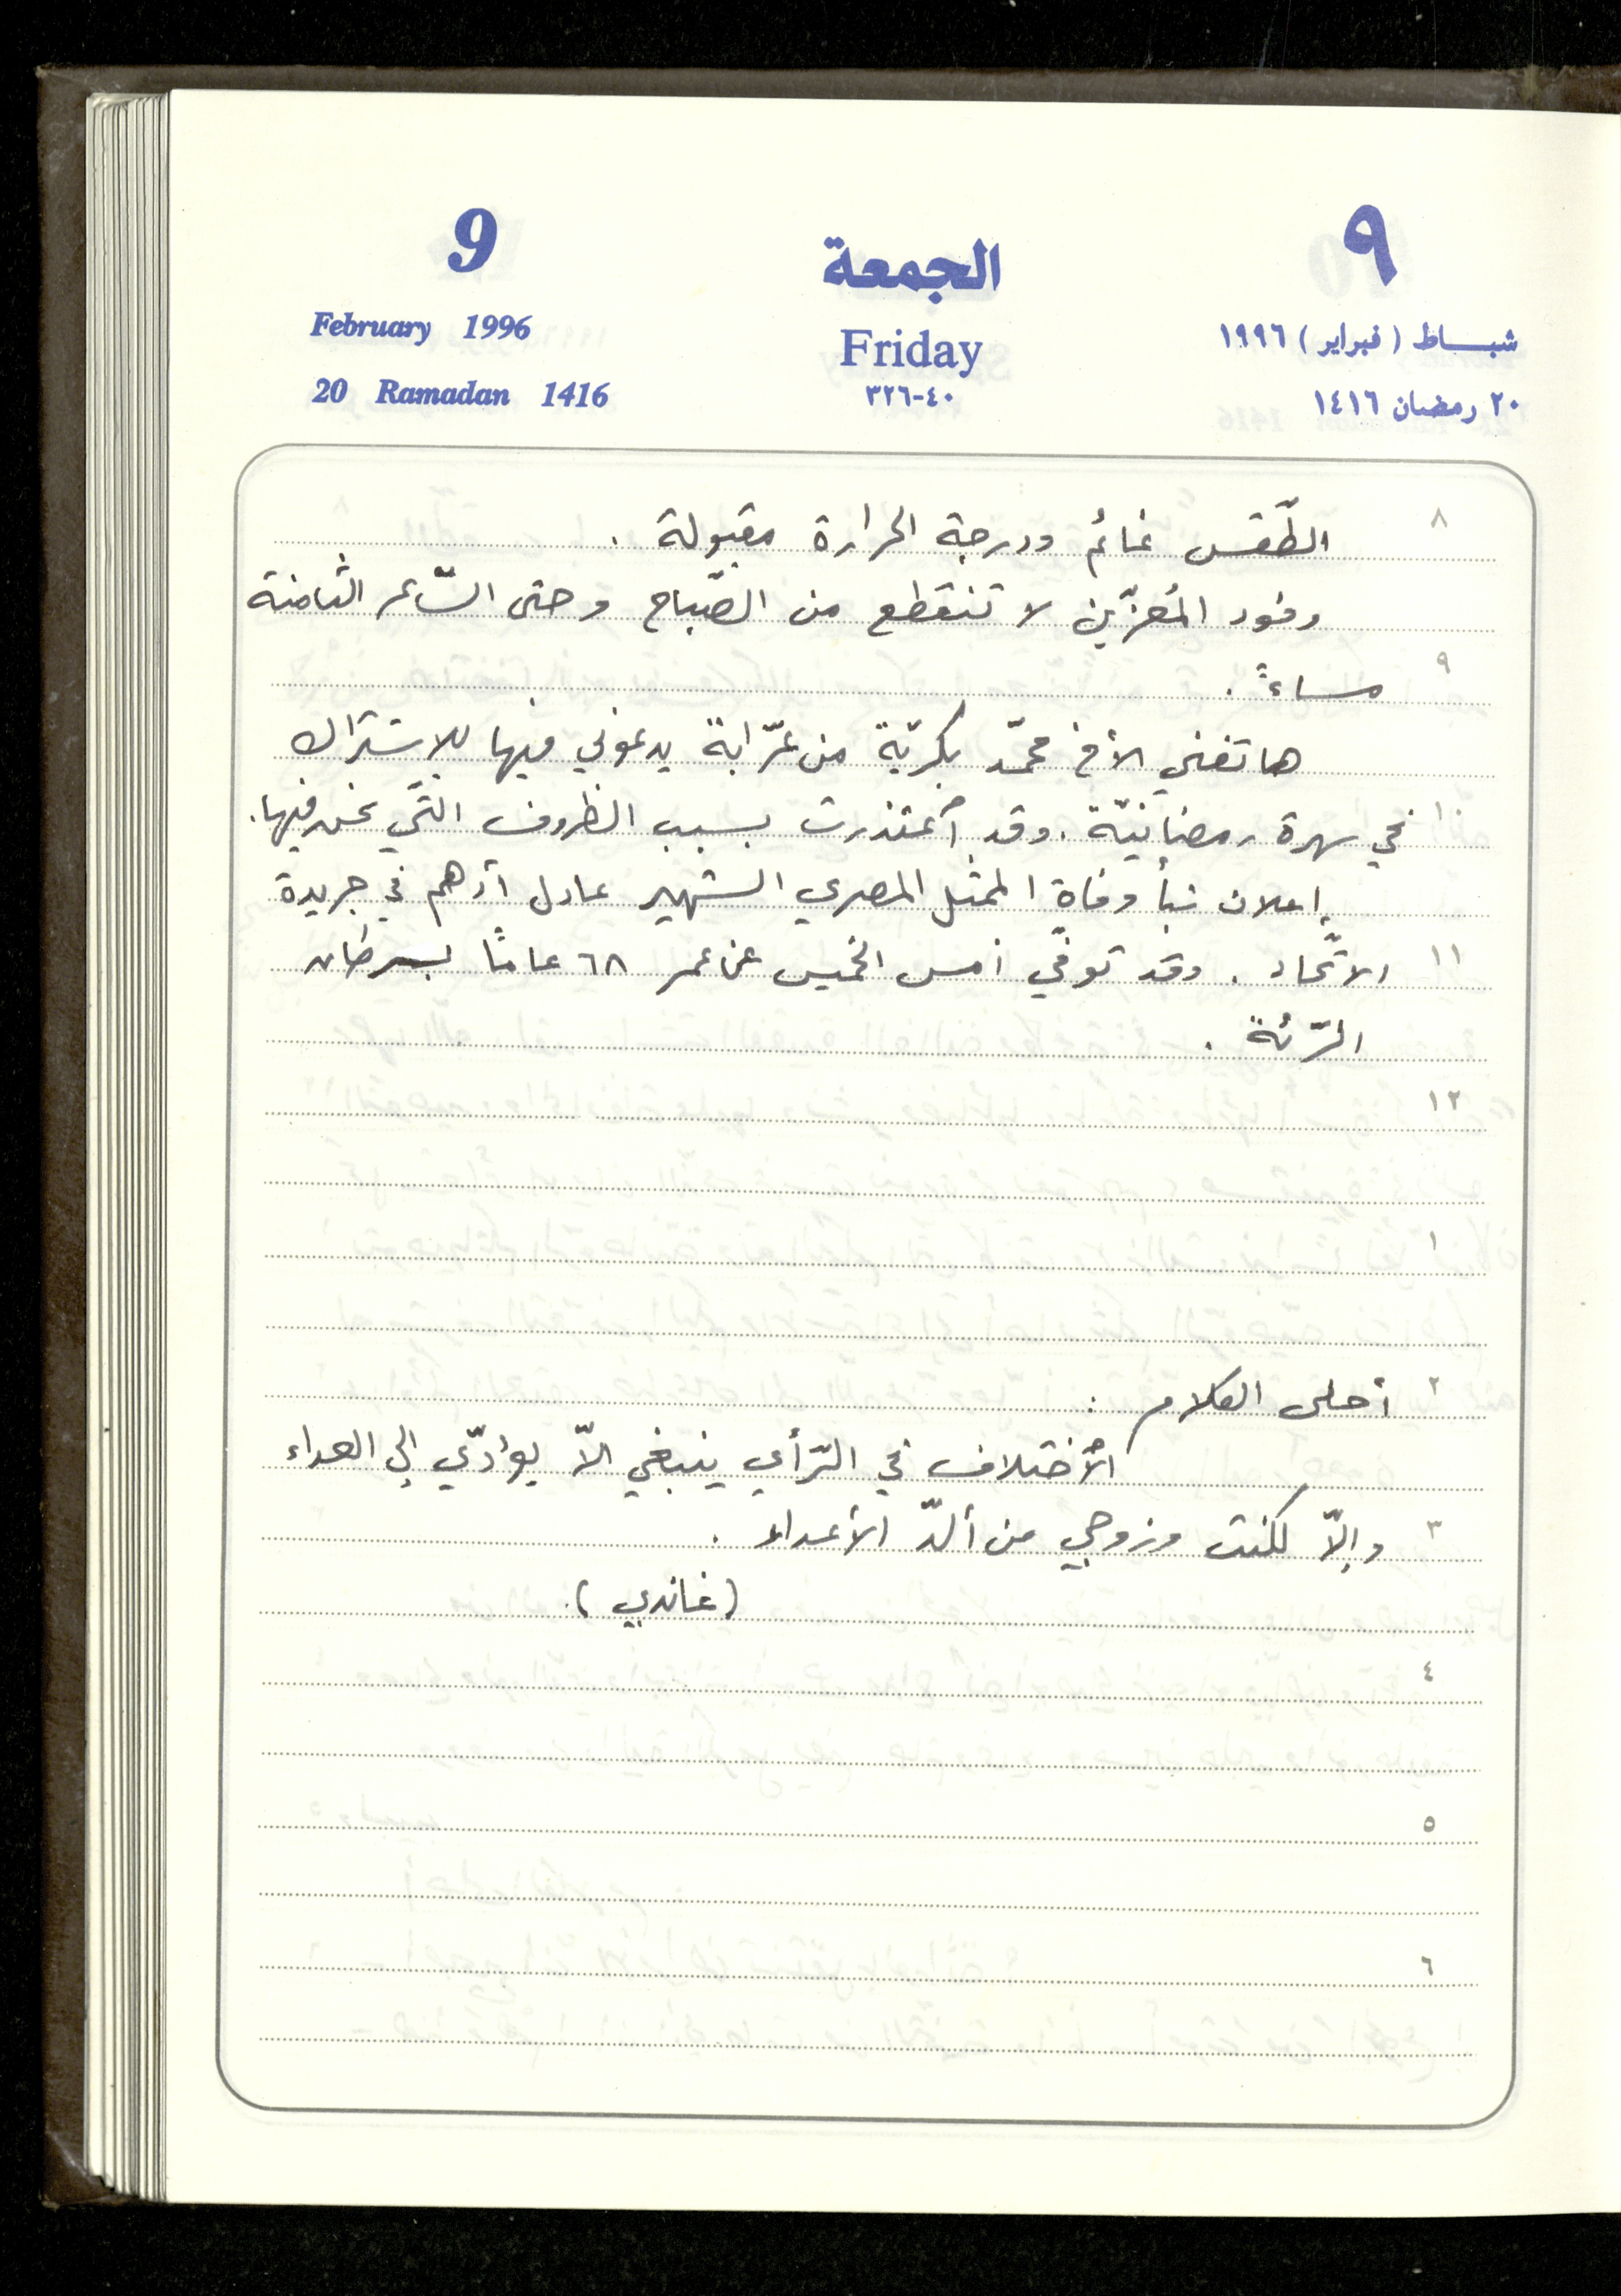 9 الجمعة ٩
February 1996 Friday شباط (فبراير) ١٩٩٦
20 Ramadan 1416 ٤٠-٣٢٦ ٢٠ رمضان ١٤١٦
٨ الطّقس غائم ودرجة الحرارة مقبولة .
وفود المُعزّين لا تنقطع من الصّباح وحتى السّاعة الثامنة
٩ مساءً .
هاتفني الأخ محمّد بكريّة من عرّابة يدعوني فيها للإشتراك
١٠ في سهرة رمضانيّة . وقد أعتذرت بسبب الظروف التّي نحن فيها .
إعلان نبأ وفاة الممثل المصري الشهير عادل أدهم في جريدة
١١ الاتّحاد . وقد توفّي أمس الخميس عن عمر ٦٨ عامًا بسرطان
الرّئة .
١٢
١
٢ أحلى الكلام :
الأختلاف في الرّأي ينبغي الاّ يؤدّي إلى العداء
٣ وإلاّ لكنت وزوجي من ألدّ الأعداء .
(غاندي) .
٤
٥
٦